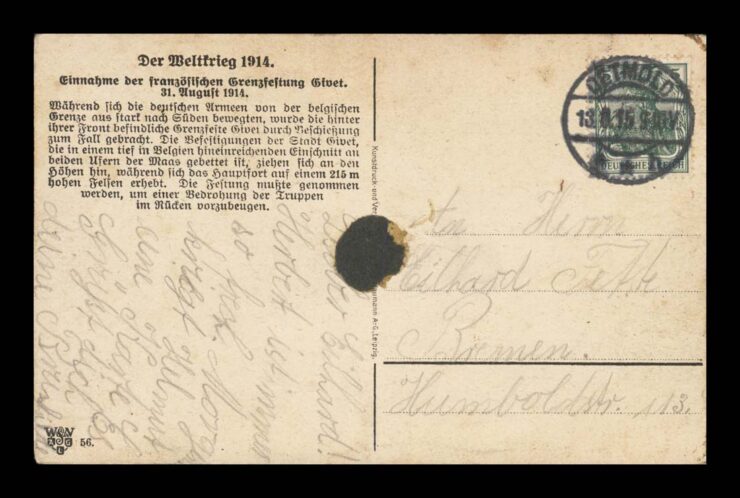 Der Weltkrieg 1914.
Einnahme der französischen Grenzfestung Givet.
31. August 1914.
Während sich die deutschen Armeen von der belgischen
Grenze aus stark nach Süden bewegten, wurde die hinter
ihrer Front befindliche Grenzfeste Givet durch Beschießung
zum Fall gebracht. Die Befestigungen der Stadt Givet,
die in einem tief in Belgien hineinreichenden Einschnitt an
beiden Ufern der Maas gebettet ist, ziehen sich an den
Höhen hin, während sich das Hauptfort auf einem 215 m
hohen Felsen erhebt. Die Festung mußte genommen
werden, um einer Bedrohung der Truppen
im Rücken vorzubeugen.
Lieber Eilhard!
Herbert ist immer
so frech.
kriegt Helmut
eine
56.
Kunstdruck- und
A.-G. Leipzig.
DETMOLD
13.8.15
DEUTSCHES REICH
Herrn
Eilhard
Bremen.
Humboldtstr. 113.